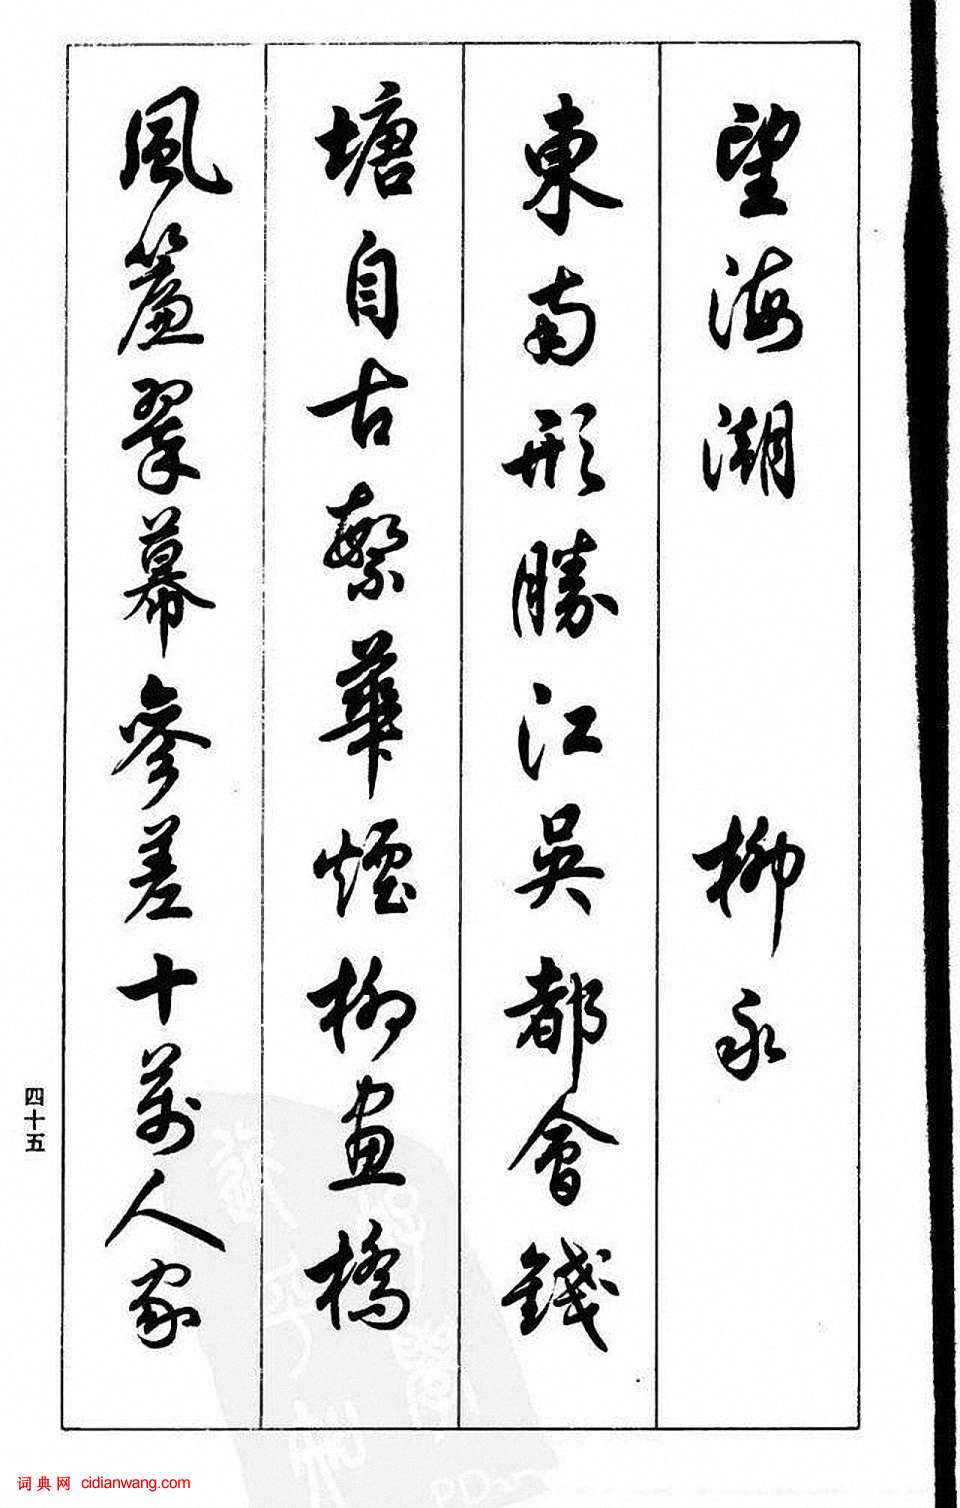 望海潮 柳永
東南形勝江吳都會錢
塘自古繁華煙柳畫橋
風簾翠幕參差十萬人家
四十五
词典网 cidianwang.com